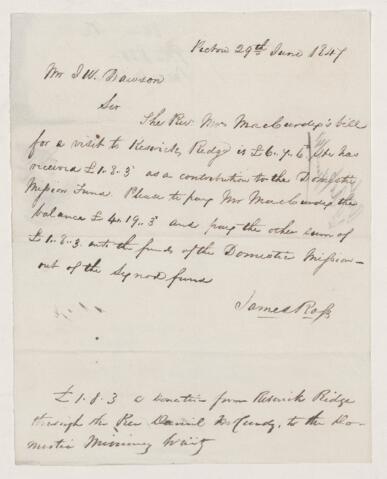 Pictou 29th June 1847
Mr J. W. Dawson
Sir
The Rev. Mr MacCurdy's bill
for a visit to Keswick Ridge is £6.7.6 He has
received £1.8.3 as a contribution to the Domestic
Mission Fund. Please to pay Mr MacCurdy the
balance £4.19.3 and pay the other sum of
£1.8.3 into the funds of the Domestic Mission
out of the Synod fund
James Ross
£1.8.3 a donation from Keswick Ridge
through the Rev Daniel McCurdy, to the Do-
mestic Missiony